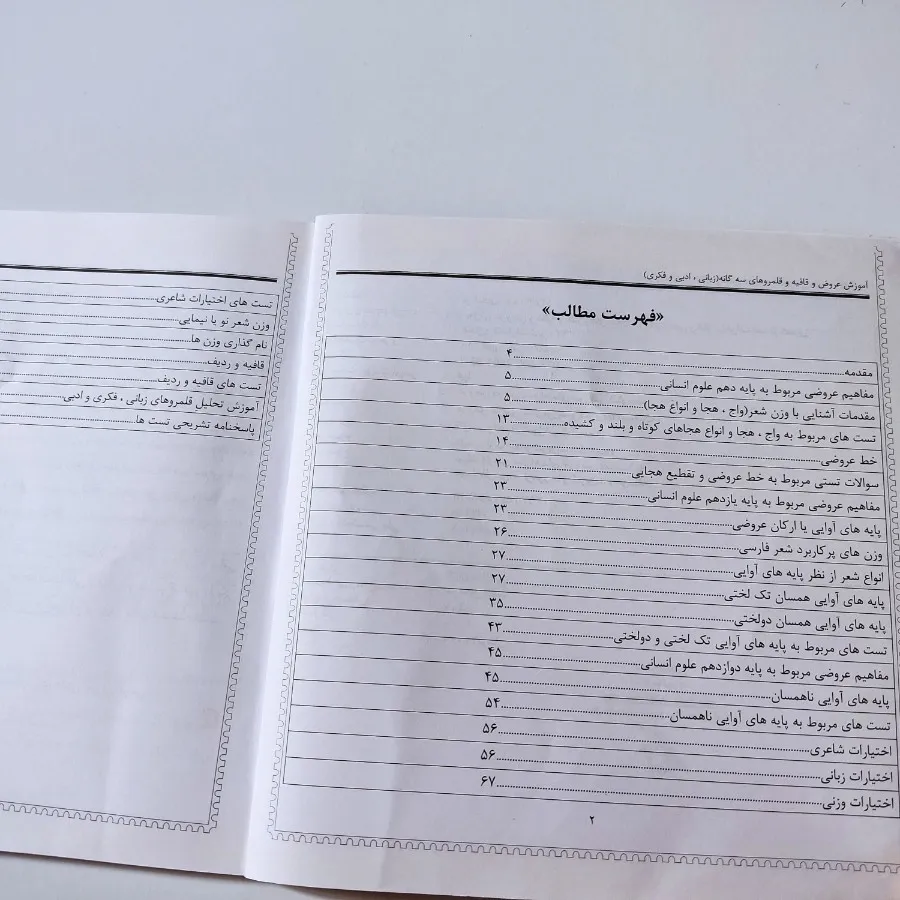 آموزش عروض و قافیه و قلمروهای سه گانه(زبانی ، ادبی و فکری)
«فهرست مطالب»
مقدمه........................۴
مفاهیم عروضی مربوط به پایه دهم علوم انسانی........................۵
مقدمات آشنایی با وزن شعر(واج ، هجا و انواع هجا)........................۵
تست های مربوط به واج ، هجا و انواع هجاهای کوتاه و بلند و کشیده........................۱۳
خط عروضی........................۱۴
سوالات تستی مربوط به خط عروضی و تقطیع هجایی........................۲۱
مفاهیم عروضی مربوط به پایه یازدهم علوم انسانی........................۲۳
پایه های آوایی یا ارکان عروضی........................۲۳
وزن های پرکاربرد شعر فارسی........................۲۶
انواع شعر از نظر پایه های آوایی........................۲۷
پایه های آوایی همسان تک لختی........................۲۷
پایه های آوایی همسان دولختی........................۳۵
تست های مربوط به پایه های آوایی تک لختی و دولختی........................۴۳
مفاهیم عروضی مربوط به پایه دوازدهم علوم انسانی........................۴۵
پایه های آوایی ناهمسان........................۴۵
تست های مربوط به پایه های آوایی ناهمسان........................۵۴
اختیارات شاعری........................۵۶
اختیارات زبانی........................۵۶
اختیارات وزنی........................۶۷
۲
تست های اختیارات شاعری........................
وزن شعر نو یا نیمایی........................
نام گذاری وزن ها........................
قافیه و ردیف........................
تست های قافیه و ردیف........................
آموزش تحلیل قلمروهای زبانی ، فکری و ادبی........................
پاسخنامه تشریحی تست ها........................